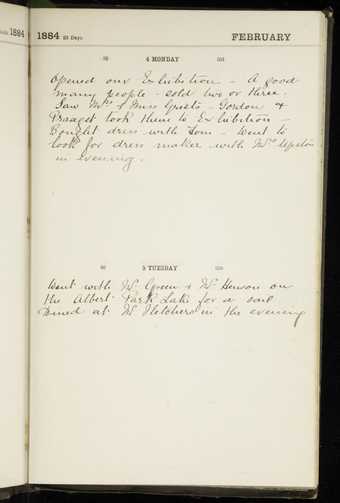 1884
1884 29 Days FEBRUARY
4 MONDAY
Opened our Exhibition - A good
many people - sold two or three.
Saw Mrs & Miss - Gordon &
took them to Exhibition -
Bought dress with Tom - Went to
look for dress maker with Mrs
in evening.
5 TUESDAY
Went with Mr Green & Mr Henson on
the Albert Park Lake for a sail
Dined at Mr Fletchers in the evening